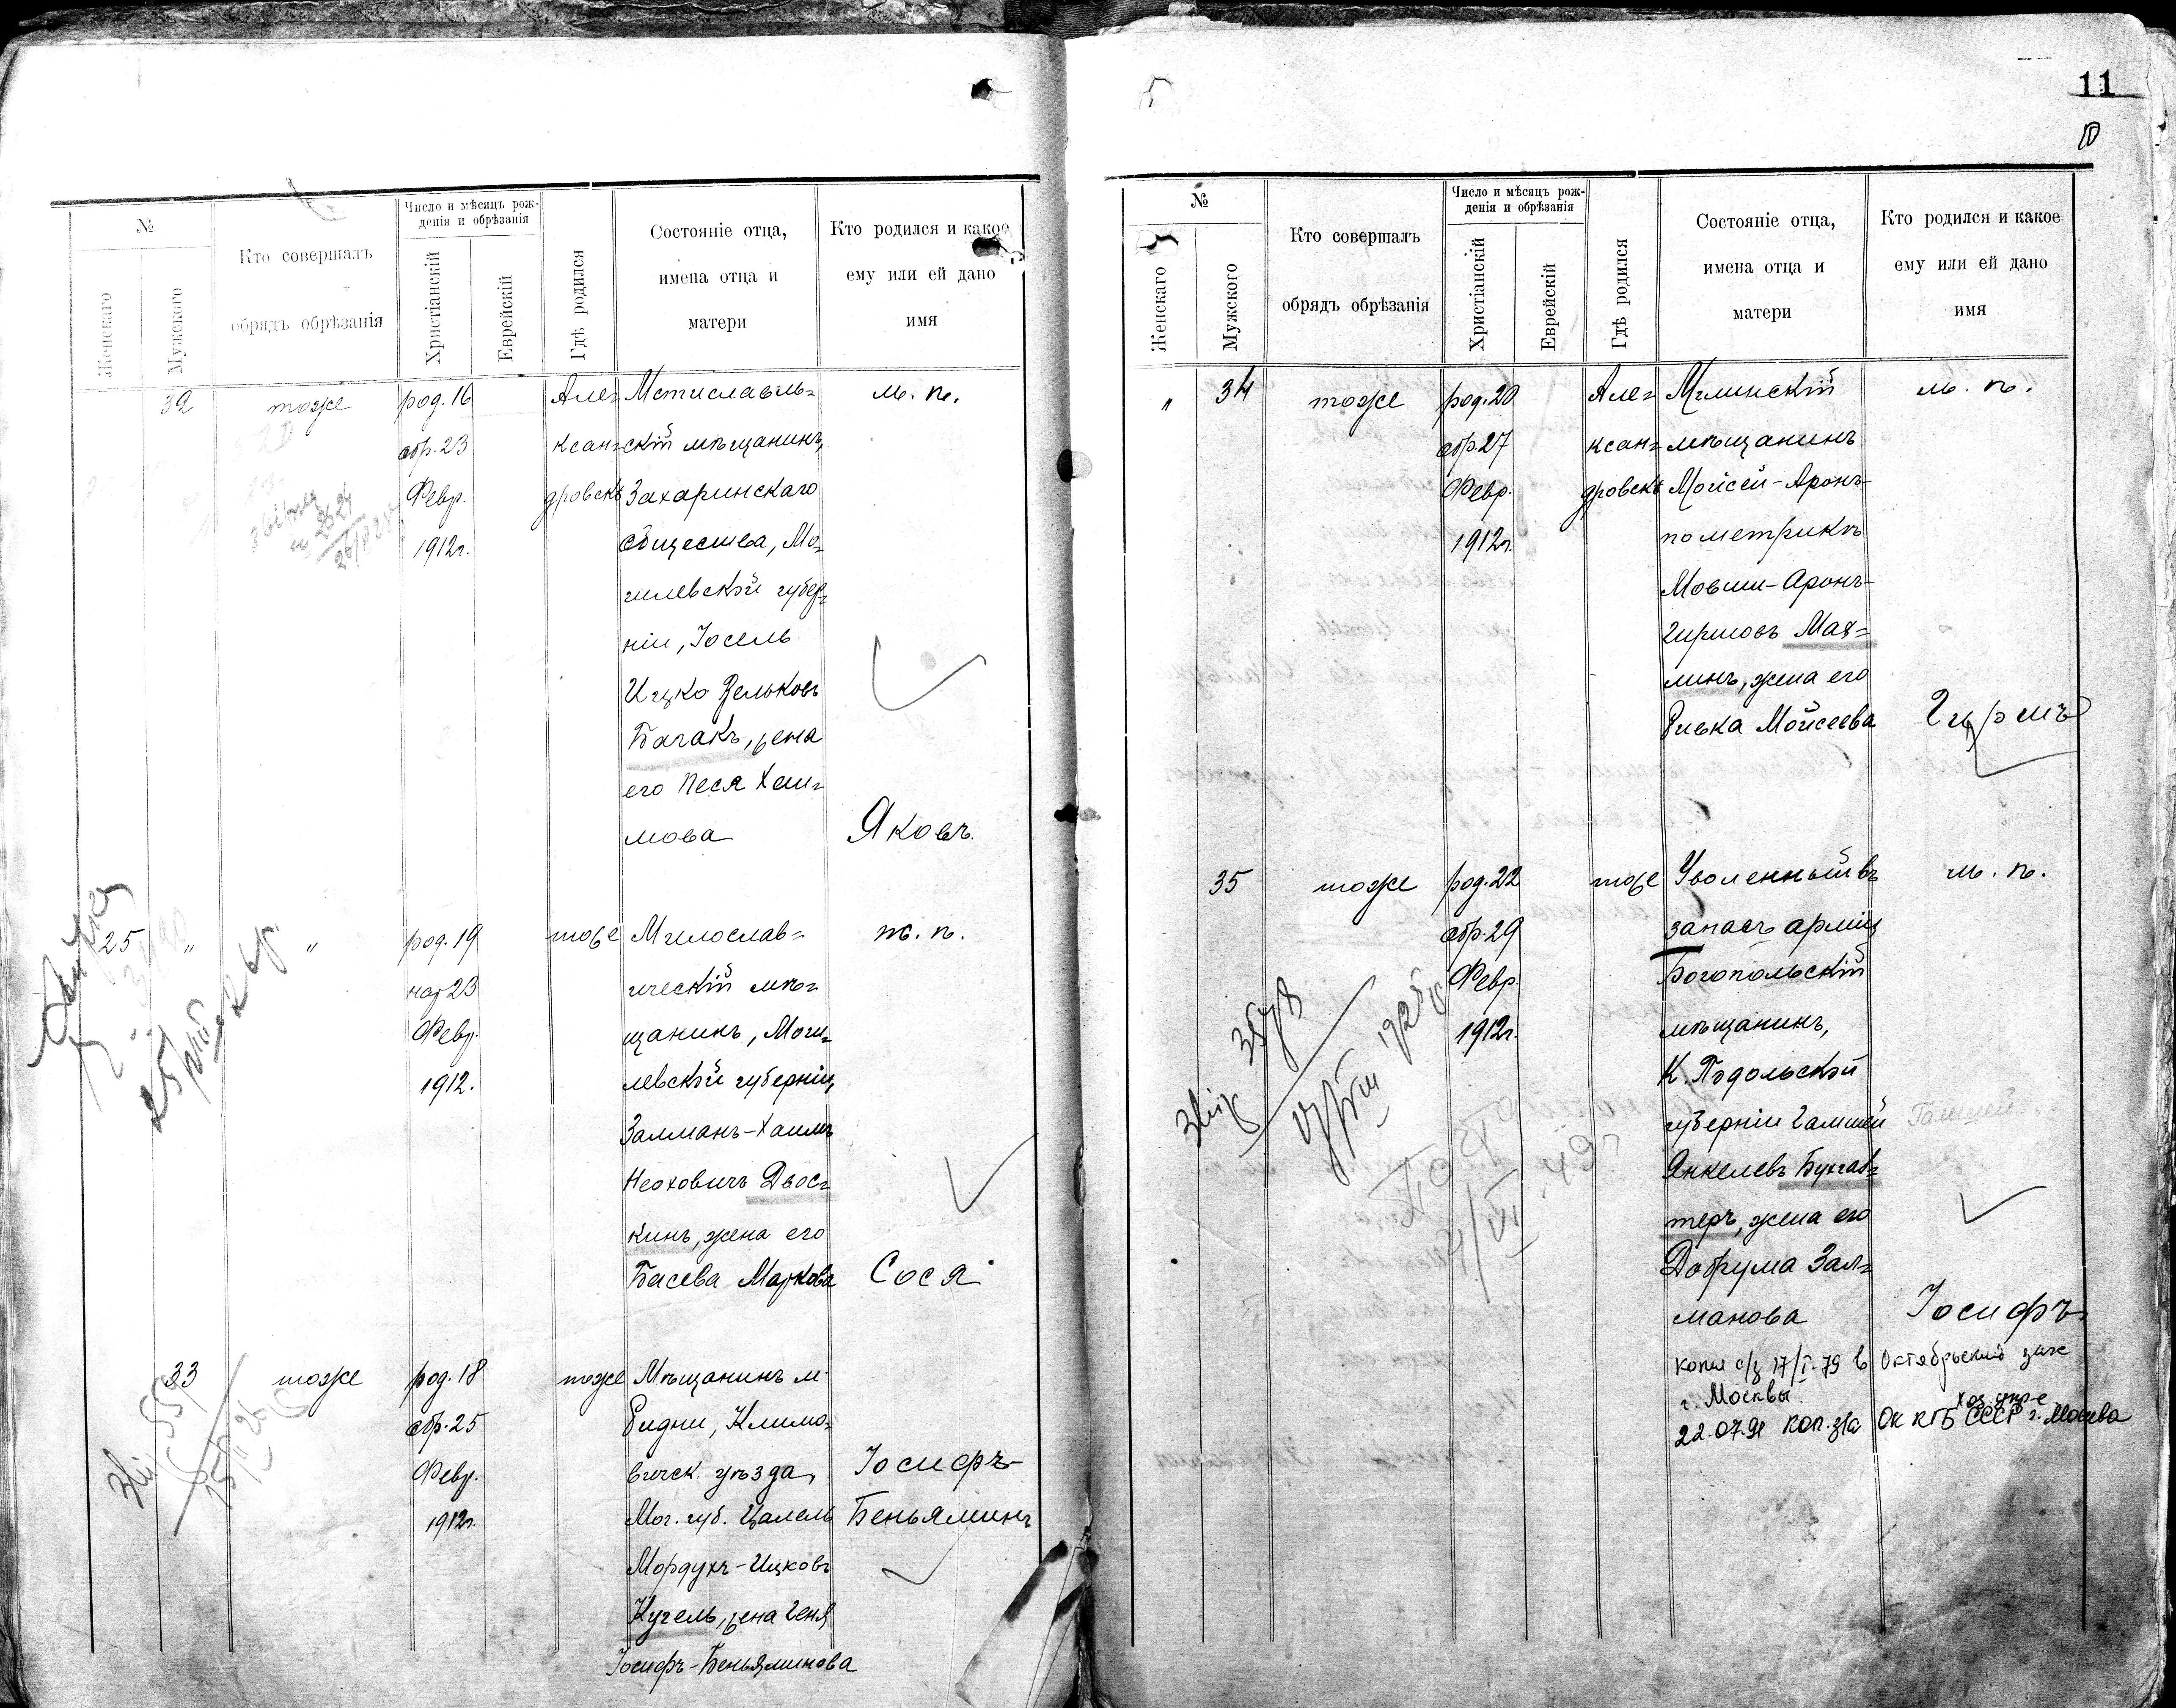 №
Женскаго
Мужского
Кто совершалъ
обрядъ обрѣзанія
Число и мѣсяцъ рож-
денія и обрѣзанія
Христіанскій
Еврейскій
Гдѣ родился
Состояніе отца,
имена отца и
матери
Кто родился и какое
ему или ей дано
имя
32 тоже род. 16 Алек= Мстиславль= м. п.
обр. 23 ксан= скій мѣщанинъ,
Февр. дровскъ Захаринскаго
1912г. общества, Мо=
гилевской губер=
ніи, Іосель
Ицко Зельковъ
Багакъ, жена
его Песя Хаи=
мова Яковъ.
25 " " род. 19 тоже Милослав= ж. п.
нар 23 ический мѣ=
Февр. щанинъ, Моги=
1912. левской губерніи,
Залманъ-Хаимъ
Неоховичъ Двос=
кинъ, жена его
Басева Маркова Сося
33 тоже род. 18 тоже Мѣщанинъ м.
обр. 25 Ридни, Климо=
Февр. вическ. уѣзда, Іосифъ-
1912г. Мог. губ. Цалель Беньяминъ
Мордухъ-Ицковъ
Кугель, жена Геня
Іосифъ-Беньяминова
11
№
Женскаго
Мужского
Кто совершалъ
обрядъ обрѣзанія
Число и мѣсяцъ рож-
денія и обрѣзанія
Христіанскій
Еврейскій
Гдѣ родился
Состояніе отца,
имена отца и
матери
Кто родился и какое
ему или ей дано
имя
" 34 тоже род. 20 Алек= Мглинскій м. п.
обр. 27 ксан= мѣщанинъ
Февр. дровскъ Моисей-Аронъ-
1912г. по метрикѣ
Мовши-Аронъ-
Гиршовъ Мая=
линъ, жена его
Ривка Мойсеева Гиршъ
35 тоже род. 22 тоже Уволенный въ м. п.
обр. 29 запасъ арміи
Февр. Богопольскій
1912г. мѣщанинъ,
К. Подольской
губерніи Гамшей
Янкелевъ Бухгал=
теръ, жена его
Добрума Зал=
манова Іосифъ
Копия с/з 17/I-79 в Октябрьский загс
г. Москвы
22.07.91 коп. з/а Ок КГБ СССР хоз. упр-е г. Москва